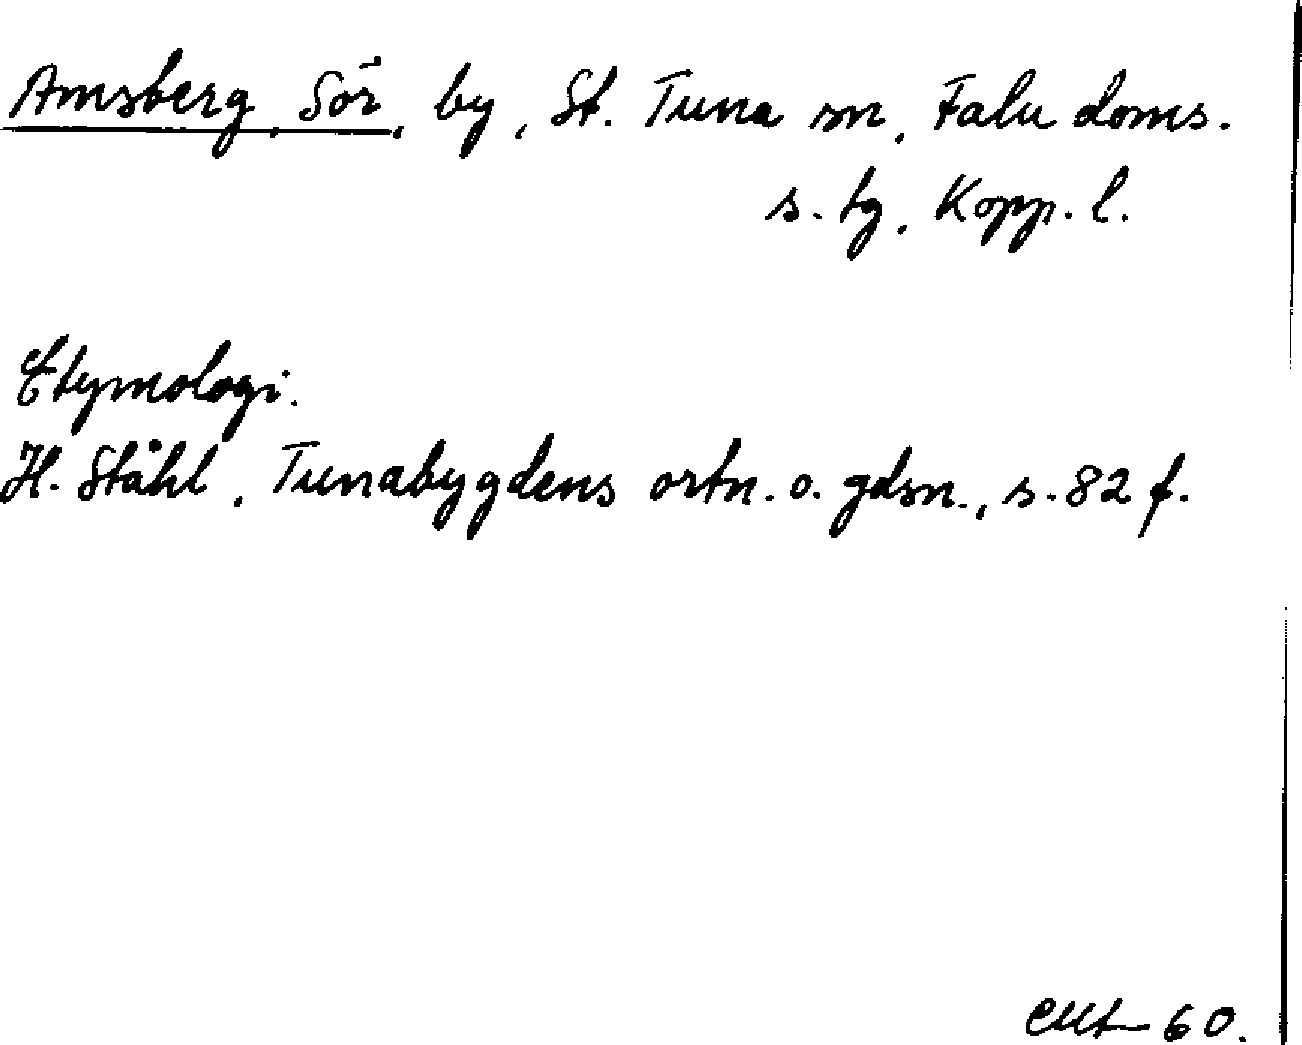 Amsberg, Sör, by, St. Tuna sn, Falu doms.
s. tg, Kopp. l.
Etymologi.
H. Ståhl, Tunabygdens ortn. o. gdsn., s. 82 f.
60.